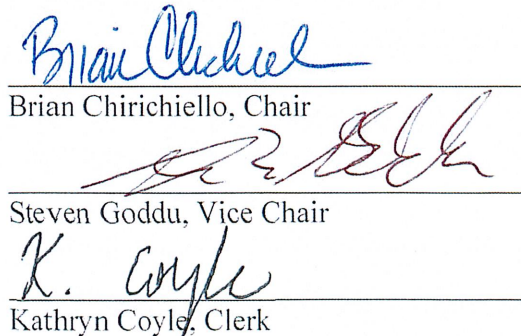 Brian Chirichiello
Brian Chirichiello, Chair
Steven Goddu, Vice Chair
K. Coyle
Kathryn Coyle, Clerk